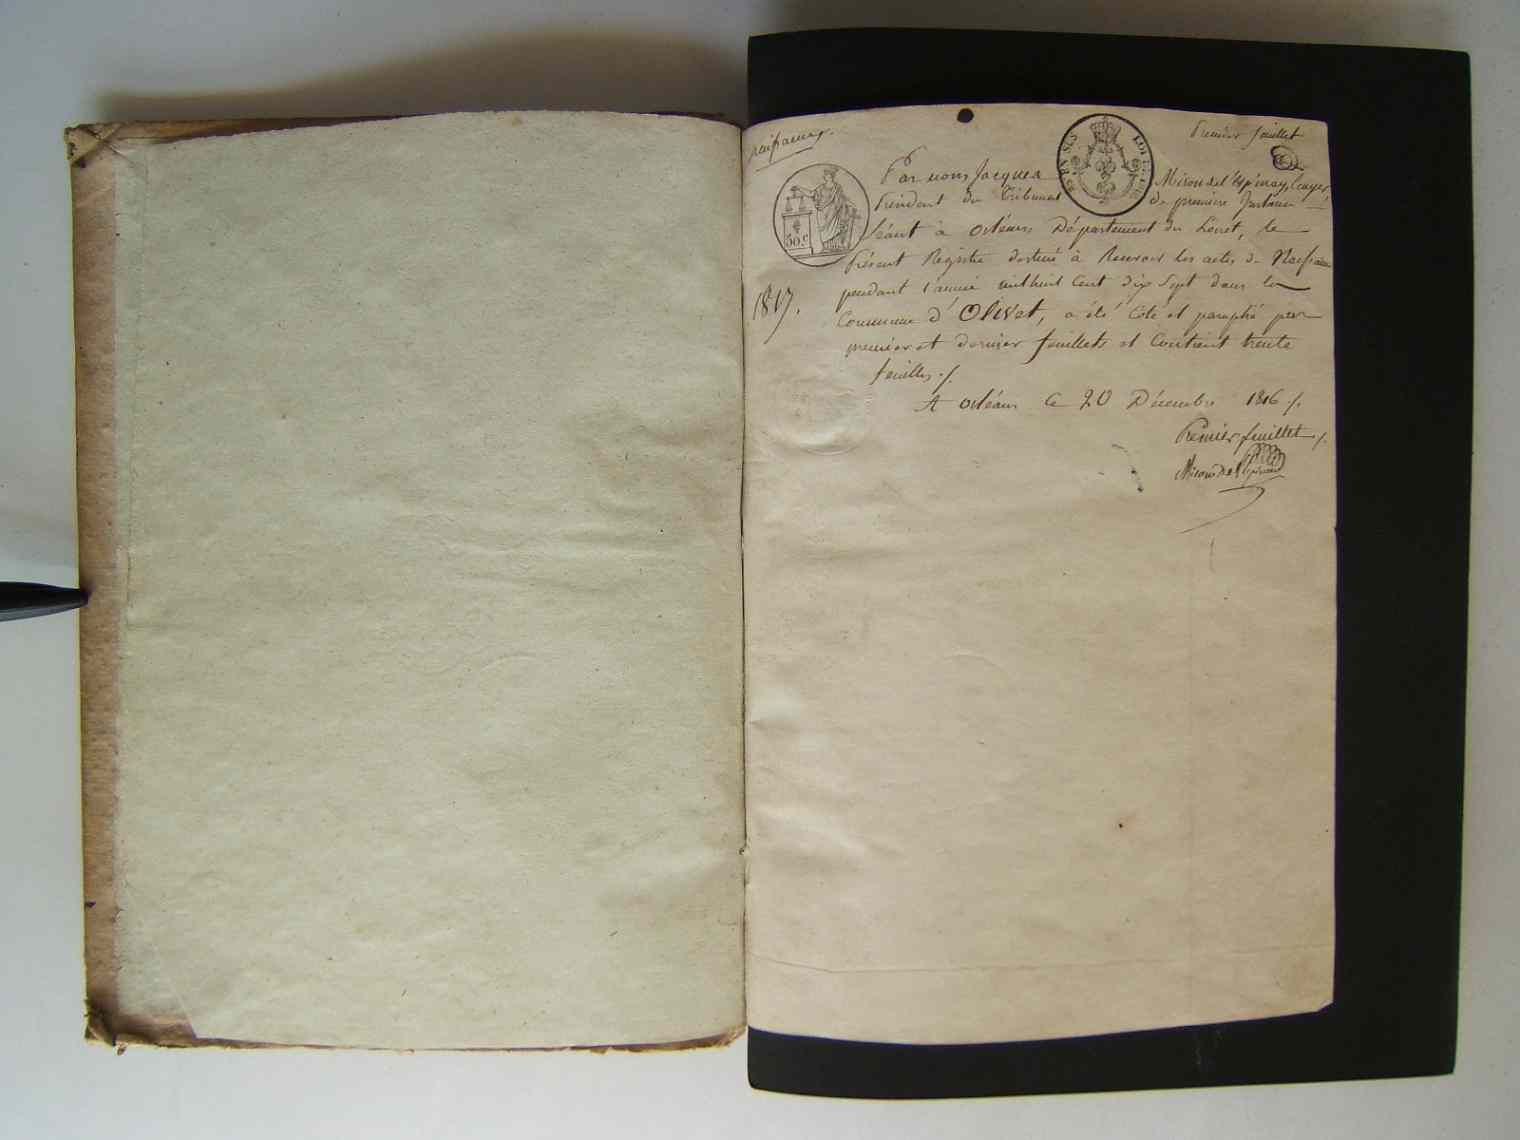 Naissances.
Premier feuillet
Par nous Jacques Miron de l'Espinay, Ecuyer,
Président du Tribunal de première Instance
Séant à Orléans Département du Loiret, le
Présent Registre destiné à Recevoir les actes de Naissance
pendant l'année mil huit Cent dix Sept dans la
Commune d'Olivet, a été Coté et paraphé par
premier et dernier feuillets et Contient trente
feuilles ./.
A Orléans Ce 20 Décembre 1816 ./.
Premier feuillet ./.
Miron de l'Espinay
1817.
50 c.